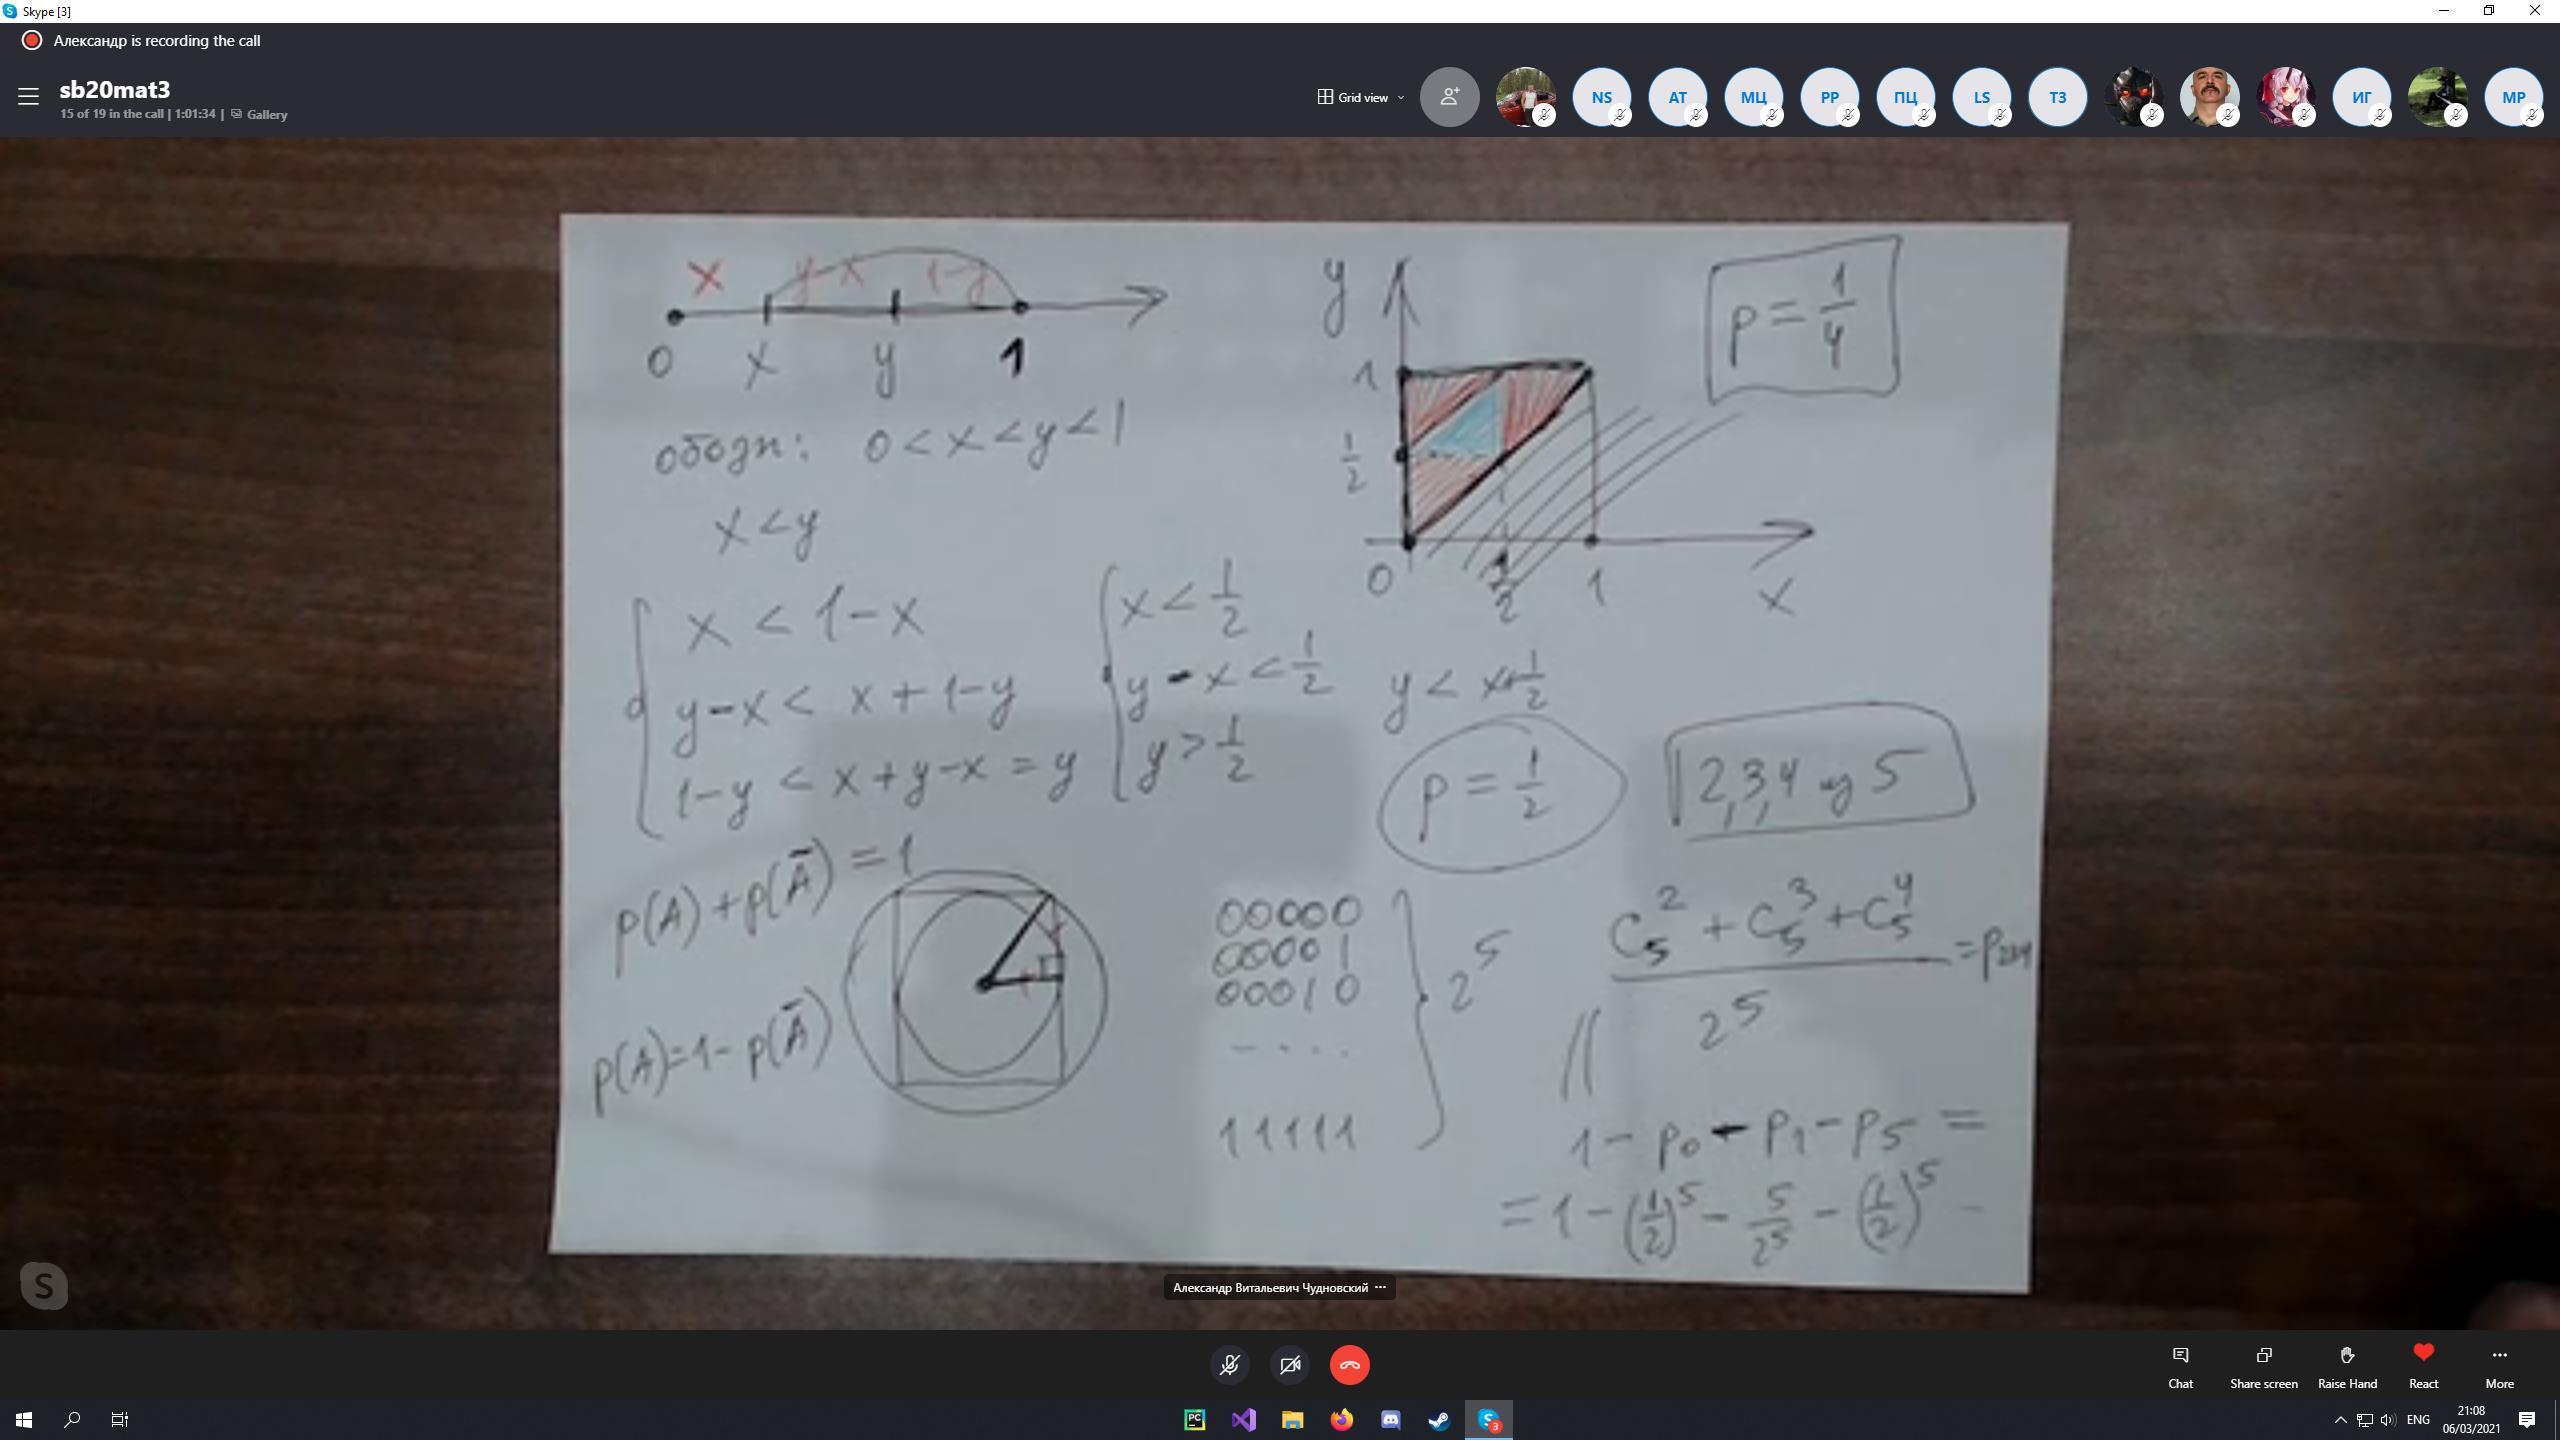 Skype [3]
Александр is recording the call
sb20mat3
15 of 19 in the call | 1:01:34 | Gallery
Grid view
NS
AT
МЦ
PP
ПЦ
LS
ТЗ
ИГ
MP
x y-x 1-y
0 x y 1
обозн: 0 < x < y < 1
x < y
y
1
1/2
0 1/2 1 x
p = 1/4
{ x < 1-x
y-x < x+1-y
1-y < x+y-x = y
{ x < 1/2
y-x < 1/2
y > 1/2
y < x+1/2
p = 1/2
2,3,4 из 5
p(A)+p(Ā)=1
p(A)=1-p(Ā)
00000
00001
00010
- . . .
11111
} 2^5
(C_5^2 + C_5^3 + C_5^4) / 2^5 = p_234
||
1 - p_0 - p_1 - p_5 =
= 1 - (1/2)^5 - 5/2^5 - (1/2)^5 -
Александр Витальевич Чудновский
S
Chat
Share screen
Raise Hand
React
More
PC
S
3
ENG
21:08
06/03/2021